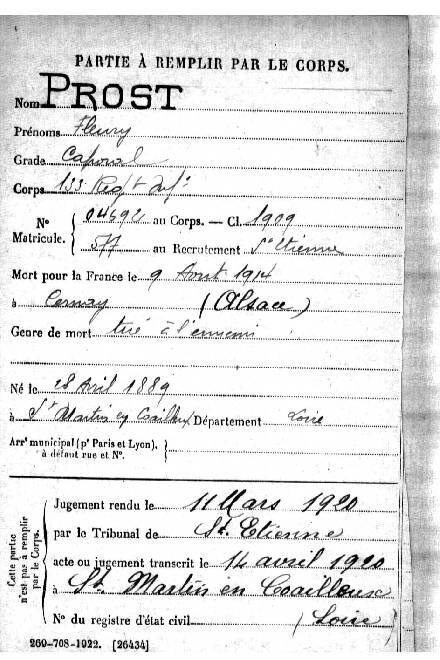 PARTIE À REMPLIR PAR LE CORPS.
Nom PROST
Prénoms Fleury
Grade Caporal
Corps 133 Regt Infie
N° Matricule. { 04692 au Corps. — Cl. 1909
577 au Recrutement St Etienne
Mort pour la France le 9 Aout 1914
à Cernay (Alsace)
Genre de mort tué à l'ennemi
Né le 28 Avril 1889
à St Martin en Coailleux Département Loire
Arrt municipal (pr Paris et Lyon), à défaut rue et N°. }
Cette partie n'est pas à remplir par le Corps.
Jugement rendu le 11 Mars 1920
par le Tribunal de St. Etienne
acte ou jugement transcrit le 14 avril 1920
à St Martin en Coailleux
N° du registre d'état civil (Loire)
269-708-1922. [26434]